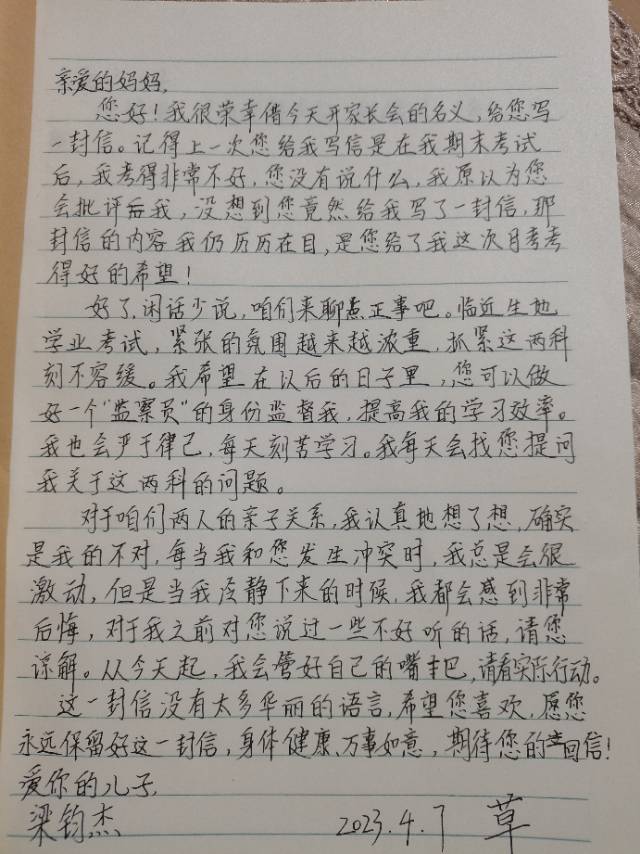 亲爱的妈妈,
您好!我很荣幸借今天开家长会的名义,给您写
一封信。记得上一次您给我写信是在我期末考试
后,我考得非常不好,您没有说什么,我原以为您
会批评我,没想到您竟然给我写了一封信,那
封信的内容我仍历历在目,是您给了我这次月考考
得好的希望!
好了,闲话少说,咱们来聊点正事吧。临近生地
学业考试,紧张的氛围越来越浓重,抓紧这两科
刻不容缓。我希望在以后的日子里,您可以做
好一个“监察员”的身份监督我,提高我的学习效率。
我也会严于律己,每天刻苦学习。我每天会找您提问
我关于这两科的问题。
对于咱们两人的亲子关系,我认真地想了想,确实
是我的不对,每当我和您发生冲突时,我总是会很
激动,但是当我冷静下来的时候,我都会感到非常
后悔,对于我之前对您说过一些不好听的话,请您
谅解。从今天起,我会管好自己的嘴巴,请看实际行动。
这一封信没有太多华丽的语言,希望您喜欢,愿您
永远保留好这一封信,身体健康、万事如意,期待您的回信!
爱你的儿子,
梁钧杰 2023.4.7 草